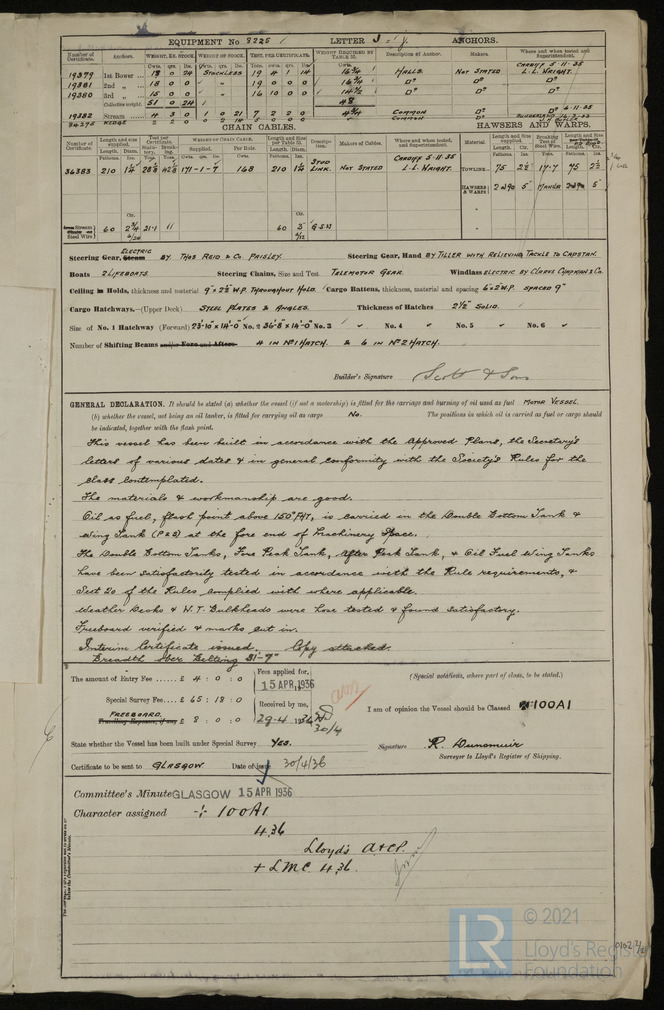 EQUIPMENT No 8225 LETTER J ANCHORS.
Number of Certificate. Anchors. WEIGHT, EX. STOCK. WEIGHT OF STOCK. TEST, PER CERTIFICATE. WEIGHT REQUIRED BY TABLE 53. Description of Anchor. Makers. Where and when tested and Superintendent.
19379 1st Bower ... 18 0 24 STOCKLESS 19 4 1 14 16¾ HALLS. NOT STATED CARDIFF 5-11-35 L.L. WRIGHT.
19381 2nd „ ... 18 0 0 19 0 0 0 16¾ Do Do Do
19380 3rd „ ... 15 0 0 16 10 0 0 14½ Do Do Do
Collective weight. 51 0 24 48
19382 Stream ... 4 3 0 1 0 21 7 2 2 0 4¾ COMMON Do
KEDGE 2 2 0 COMMON Do
CHAIN CABLES. HAWSERS AND WARPS.
Number of Certificate. Length and size supplied. Test per Certificate. WEIGHT OF CHAIN CABLE. Length and size per Table 53. Description. Makers of Cables. Where and when tested, and Superintendent. Material. Length and size supplied. Breaking Test of Steel Wire. Length and Size
36383 210 1¼ 28⅛ 42⅛ 171-1-7 168 210 1¼ STUD LINK. NOT STATED CARDIFF 5-11-35 L.L. WRIGHT. TOWLINE 75 2½ 14-7 75 2½
HAWSERS & WARPS 2 @ 90 5 MANILA 2 @ 90 5
Steel Wire) 60 2¾ 21-1 60 3 G.S.W
Steering Gear, Steam ELECTRIC BY THOS REID & CO. PAISLEY. Steering Gear, Hand BY TILLER WITH RELIEVING TACKLE TO CAPSTAN.
Boats 2 LIFEBOATS. Steering Chains, Size and Test TELEMOTOR GEAR. Windlass ELECTRIC BY CLARKE CHAPMAN & CO.
Ceiling in Holds, thickness and material 9" x 2½" W.P. THROUGHOUT HOLD. Cargo Battens, thickness, material and spacing 6" x 2" W.P. SPACED 9"
Cargo Hatchways.—(Upper Deck) STEEL PLATES & ANGLES. Thickness of Hatches 2½" SOLID.
Size of No. 1 Hatchway (Forward) 23'-10" x 14'-0" No. 2 36'-8" x 14'-0" No. 3 No. 4 No. 5 No. 6
Number of Shifting Beams and/or Fore and Afters 4 IN No 1 HATCH. & 6 IN No 2 HATCH.
Builder's Signature Scott & Sons
GENERAL DECLARATION. It should be stated (a) whether the vessel (if not a motorship) is fitted for the carriage and burning of oil used as fuel MOTOR VESSEL.
(b) whether the vessel, not being an oil tanker, is fitted for carrying oil as cargo No. The positions in which oil is carried as fuel or cargo should
be indicated, together with the flash point.
This vessel has been built in accordance with the Approved Plans, the Secretary's
letters of various dates & in general conformity with the Society's Rules for the
class contemplated.
The materials & workmanship are good.
Oil as fuel, flash point above 150° FHT, is carried in the Double Bottom Tank &
Wing Tank (P & S) at the fore end of Machinery Space.
The Double Bottom Tanks, Fore Peak Tank, After Peak Tank, & Oil Fuel Wing Tanks
have been satisfactorily tested in accordance with the Rule requirements, &
Sect 20 of the Rules complied with where applicable.
Weather Decks & W.T. Bulkheads were hose tested & found satisfactory.
Freeboard verified & marks cut in.
Interim Certificate issued. Copy attached.
Breadth over Belting 31'-9"
The amount of Entry Fee ...... £ 4 : 0 : 0 Fees applied for, 15 APR. 1936
(Special notations, where part of class, to be stated.)
Special Survey Fee.... £ 65 : 18 : 0 Received by me,
I am of opinion the Vessel should be Classed 100A1
FREEBOARD
Travelling Expenses, if any £ 8 : 0 : 0 29.4 1936 30/4
State whether the Vessel has been built under Special Survey YES. Signature R. Dunsmuir
Surveyor to Lloyd's Register of Shipping.
Certificate to be sent to GLASGOW. Date of issue 30/4/36
Committee's Minute GLASGOW 15 APR 1936
Character assigned 100A1
4.36
Lloyd's A & CP.
+ LMC 4.36.
© 2021
LR
Lloyd's Register
Foundation